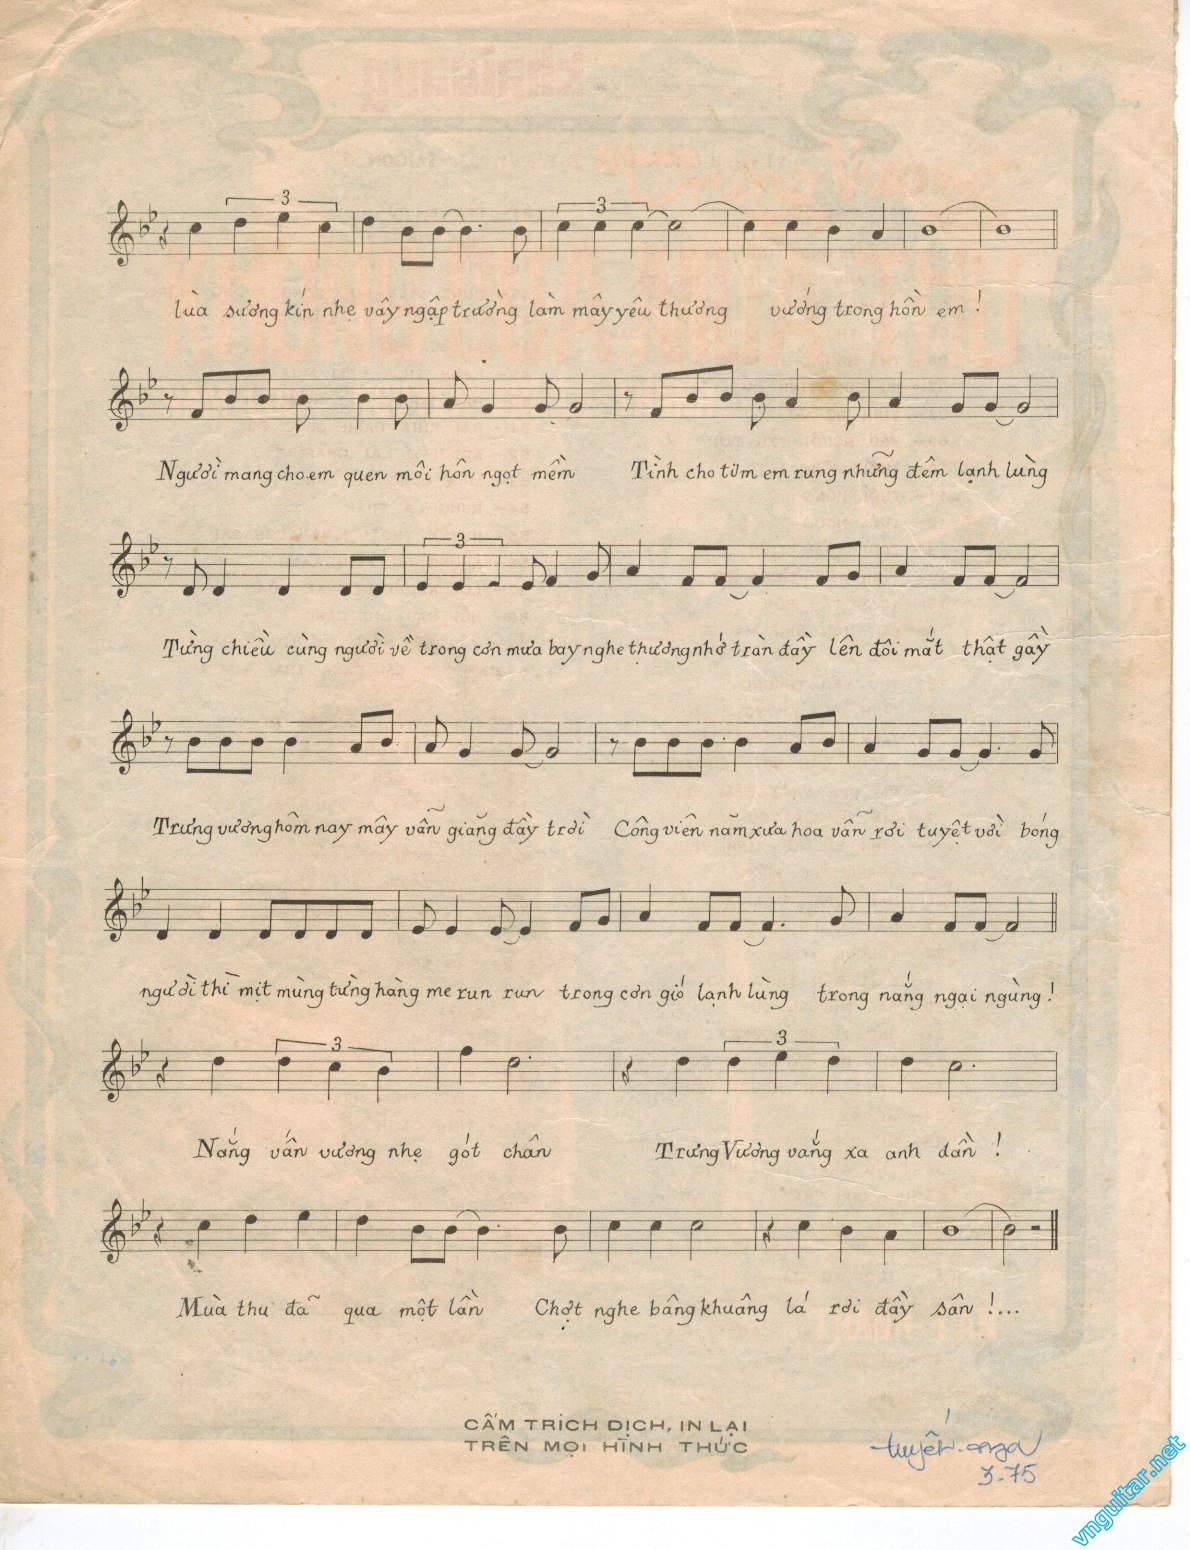 3 3
lùa sương kín nhẹ vây ngập trường làm mây yêu thương vướng trong hồn em !
Người mang cho em quen môi hôn ngọt mềm Tình cho tim em rung những đêm lạnh lùng
3
Từng chiều cùng người về trong cơn mưa bay nghe thương nhớ tràn đầy lên đôi mắt thật gầy
Trưng vương hôm nay mây vẫn giăng đầy trời Công viên năm xưa hoa vẫn rơi tuyệt vời bóng
người thì mịt mùng từng hàng me run run trong cơn gió lạnh lùng trong nắng ngại ngùng !
3 3
Nắng vấn vương nhẹ gót chân Trưng Vương vắng xa anh dần !
Mùa thu đã qua một lần Chợt nghe bâng khuâng lá rơi đầy sân !...
CẤM TRÍCH DỊCH, IN LẠI
TRÊN MỌI HÌNH THỨC
tuyết nga
3-75
vnguitar.net